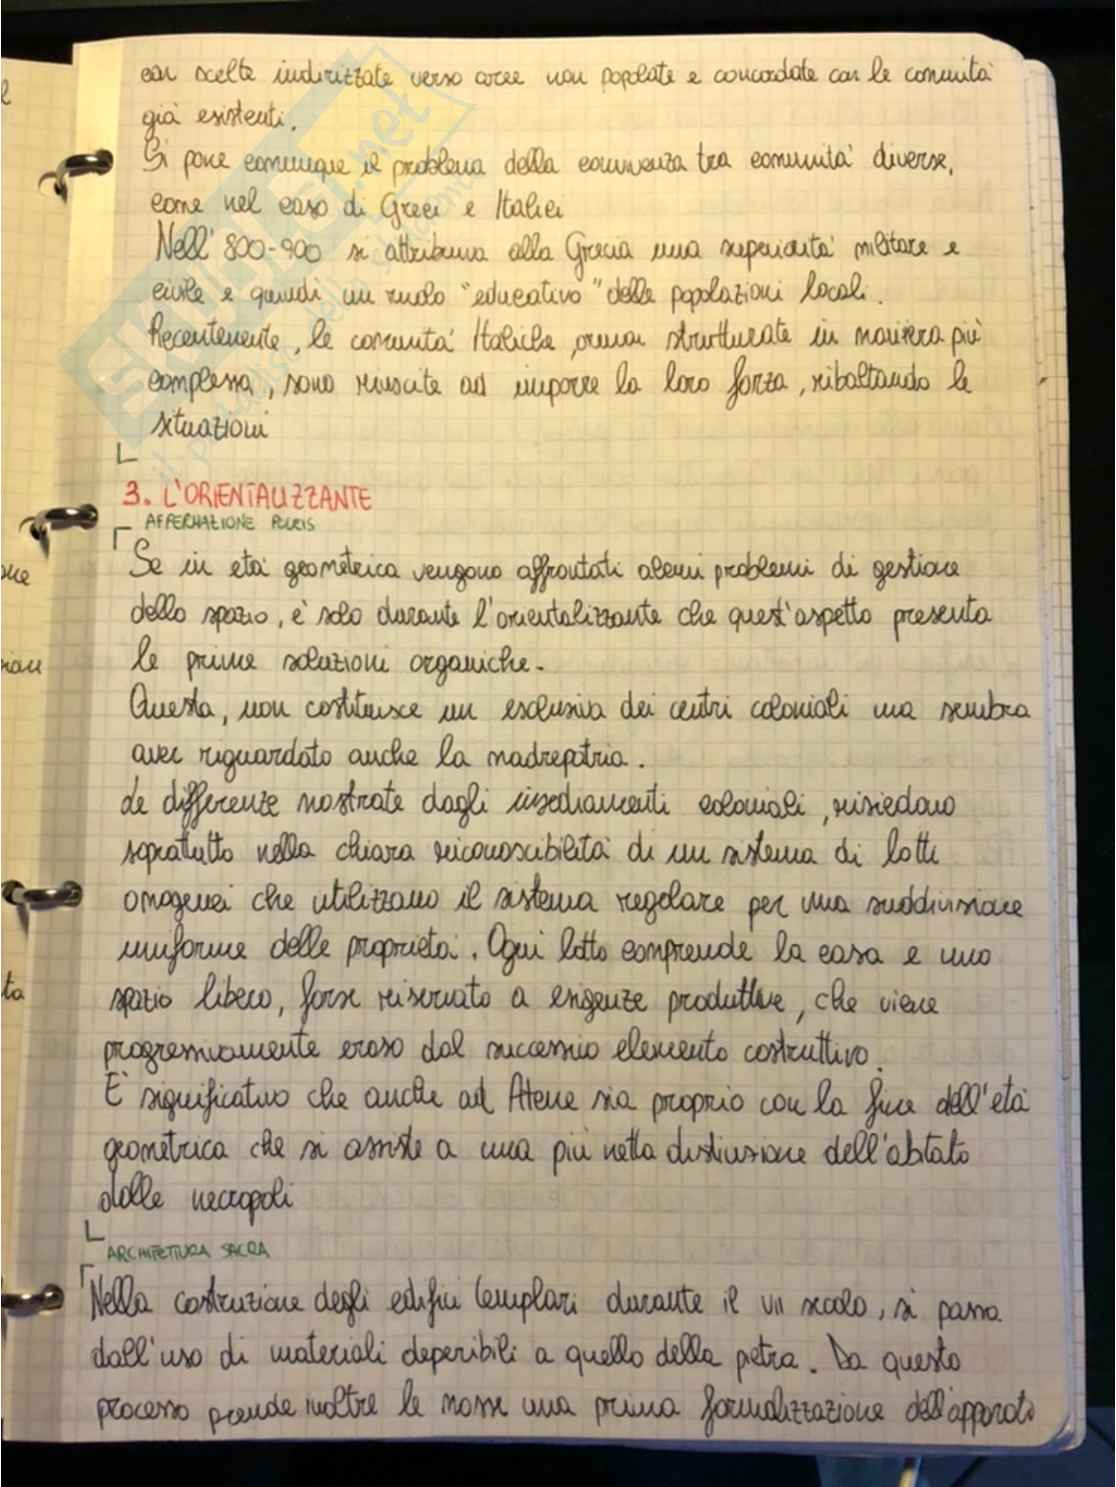 con scelte indirizzate verso aree non popolate e concordate con le comunità
già esistenti.
Si pone comunque il problema della convivenza tra comunità diverse,
come nel caso di Greci e Italici
Nell'800-900 si attribuiva alla Grecia una superiorità militare e
civile e quindi un ruolo "educativo" delle popolazioni locali.
Recentemente, le comunità Italiche, ormai strutturate in maniera più
complessa, sono riuscite ad imporre la loro forza, ribaltando le
situazioni
3. L'ORIENTALIZZANTE
AFFERMAZIONE POLEIS
Se in età geometrica vengono affrontati alcuni problemi di gestione
dello spazio, è solo durante l'orientalizzante che quest'aspetto presenta
le prime soluzioni organiche.
Questa, non costituisce un esclusiva dei centri coloniali ma sembra
aver riguardato anche la madrepatria.
Le differenze mostrate dagli insediamenti coloniali, risiedono
soprattutto nella chiara riconoscibilità di un sistema di lotti
omogenei che utilizzano il sistema regolare per una suddivisione
uniforme delle proprietà. Ogni lotto comprende la casa e uno
spazio libero, forse riservato a esigenze produttive, che viene
progressivamente eroso dal successivo elemento costruttivo.
E' significativo che anche ad Atene sia proprio con la fine dell'età
geometrica che si assiste a una più netta distinzione dell'abitato
dalle necropoli
ARCHITETTURA SACRA
Nella costruzione degli edifici templari durante il VII secolo, si passa
dall'uso di materiali deperibili a quello della pietra. Da questo
processo prende inoltre le mosse una prima formalizzazione dell'apparato